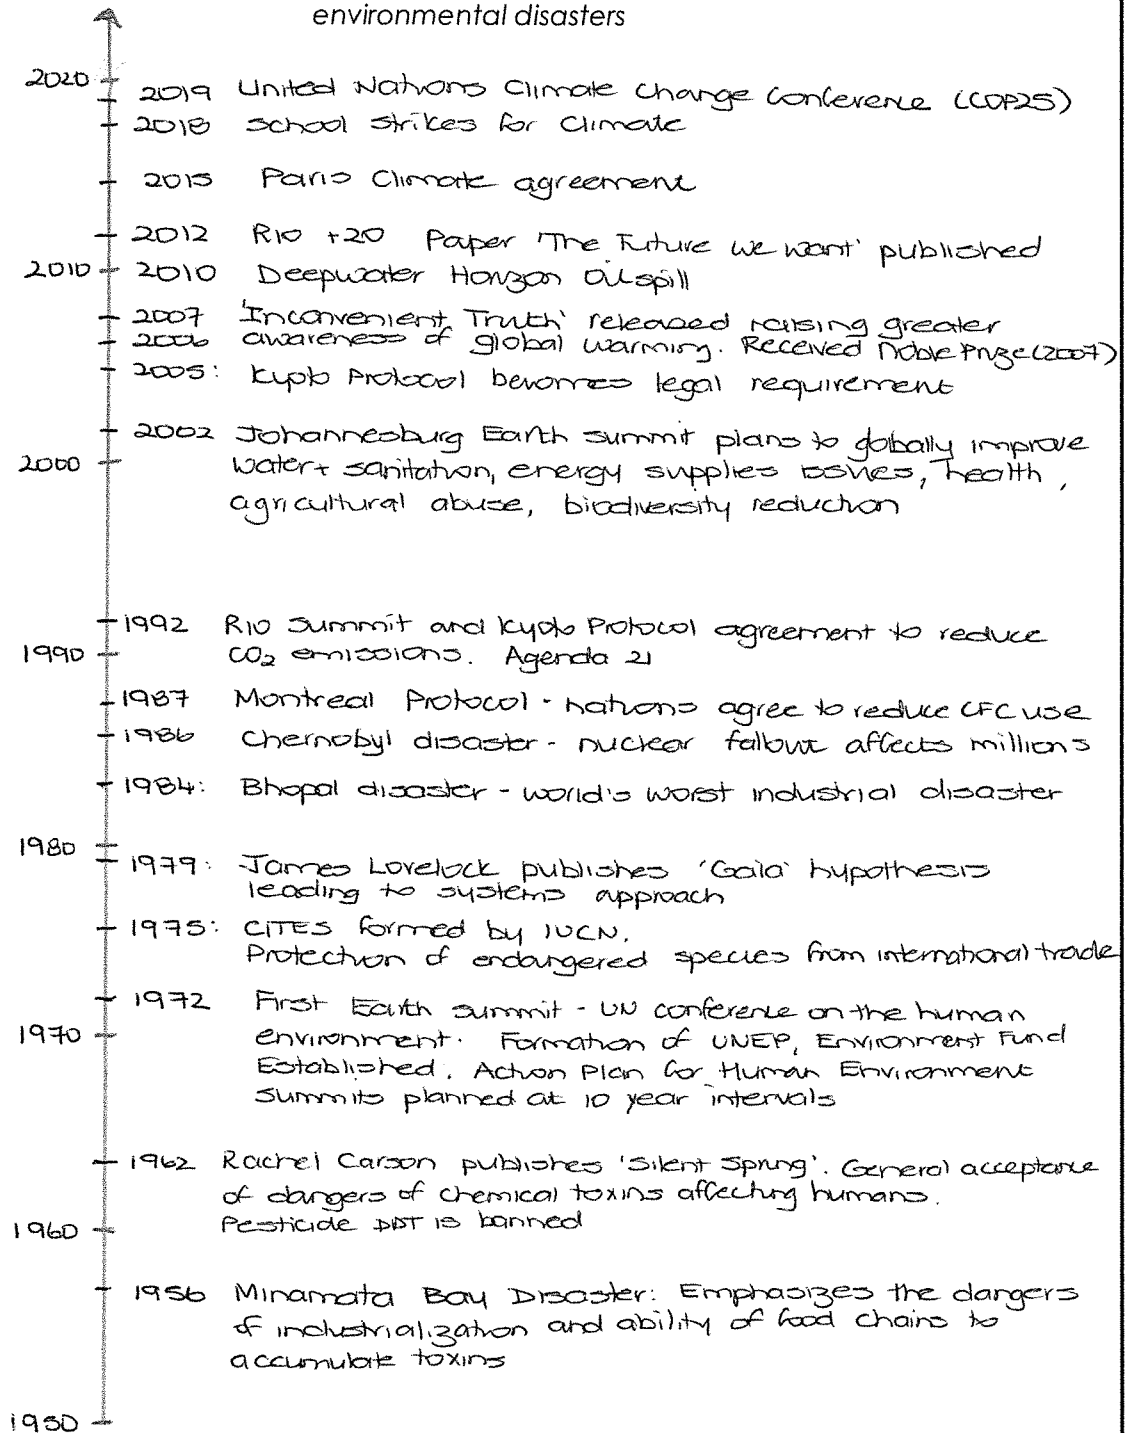 environmental disasters
2020
2019 United Nations Climate Change Conference (COP25)
2018 School strikes for Climate
2015 Paris Climate agreement
2012 Rio +20 Paper 'The Future we want' published
2010 2010 Deepwater Horizon Oil spill
2007 'Inconvenient Truth' released raising greater
2006 awareness of global warming. Received Noble Prize (2007)
2005: Kyoto Protocol becomes legal requirement
2002 Johannesburg Earth summit plans to globally improve
2000 water + sanitation, energy supplies issues, health,
agricultural abuse, biodiversity reduction
1992 Rio Summit and Kyoto Protocol agreement to reduce
1990 CO₂ emissions. Agenda 21
1987 Montreal Protocol - nations agree to reduce CFC use
1986 Chernobyl disaster - nuclear fallout affects millions
1984: Bhopal disaster - world's worst industrial disaster
1980
1979: James Lovelock publishes 'Gaia' hypothesis
leading to systems approach
1975: CITES formed by IUCN.
Protection of endangered species from international trade
1972 First Earth summit - UN conference on the human
1970 environment. Formation of UNEP, Environment Fund
Established. Action Plan for Human Environment
Summits planned at 10 year intervals
1962 Rachel Carson publishes 'Silent Spring'. General acceptance
of dangers of chemical toxins affecting humans.
1960 Pesticide DDT is banned
1956 Minamata Bay Disaster: Emphasizes the dangers
of industrialization and ability of food chains to
accumulate toxins
1950